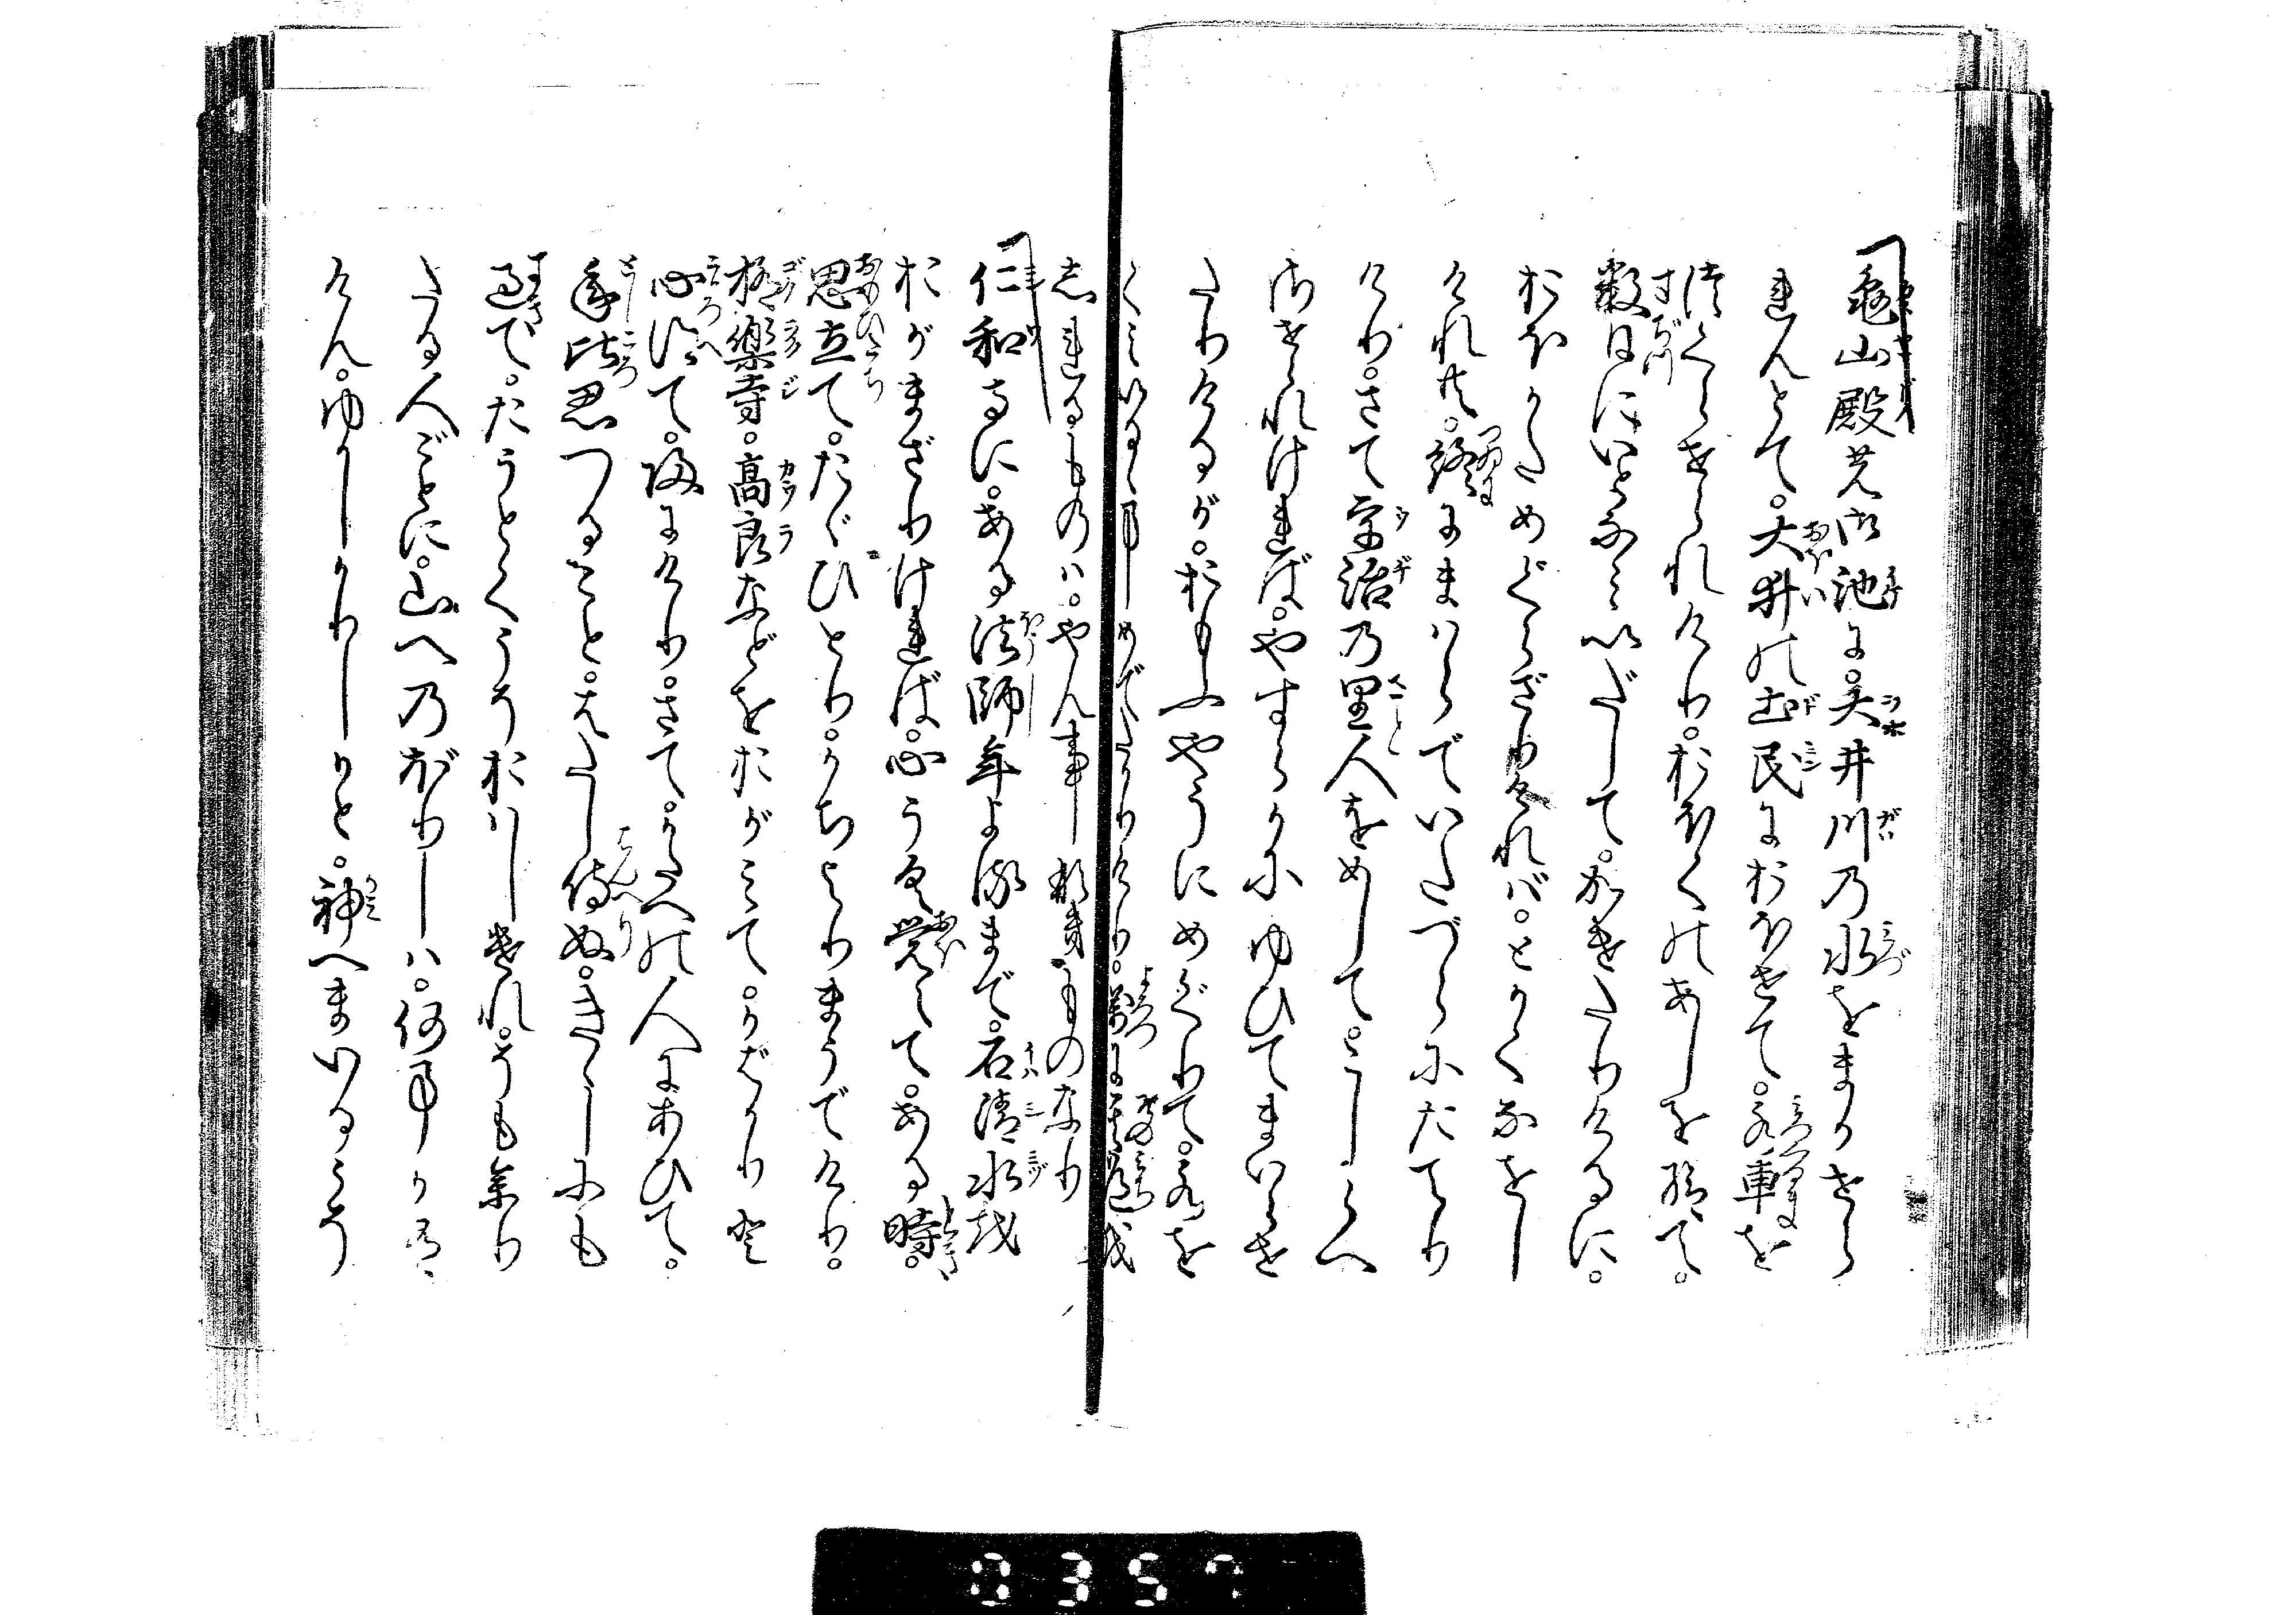 亀山殿の御池に。大井川乃水をまかせら
れんとて。大井の土民におほせて。水車を
つくらせられけり。おほくのあしを給て。
数日にいとなみいだして。かけたりけるに。
おほかためぐらざりければ。とかくなをし
けれ共。終にまはらでいたづらにたてり
けり。さて宇治乃里人をめして。こしらへ
させられければ。やすらかにゆひてまいらせ
たりけるが。おもふやうにめぐりて。水を
くみいるゝ事めでたかりけり。萬に其道を
しれるものは。やん事なきものなり
仁和寺に。ある法師年よるまで。石清水を
おがまざりければ。心うく覚えて。ある時。
思立て。たゞひとり。かちよりまうでけり。
極楽寺。高良などをおがみて。かばかりと
心得て。帰にけり。さて。かたへの人にあひて。
年比思つること。はたし侍ぬ。きゝしにも
過て。たうとくこそおはしけれ。そも参り
たる人ごとに。山へ乃ぼりしは。何事か有
けん。ゆかしかりしかど。神へまいるこそ
0357